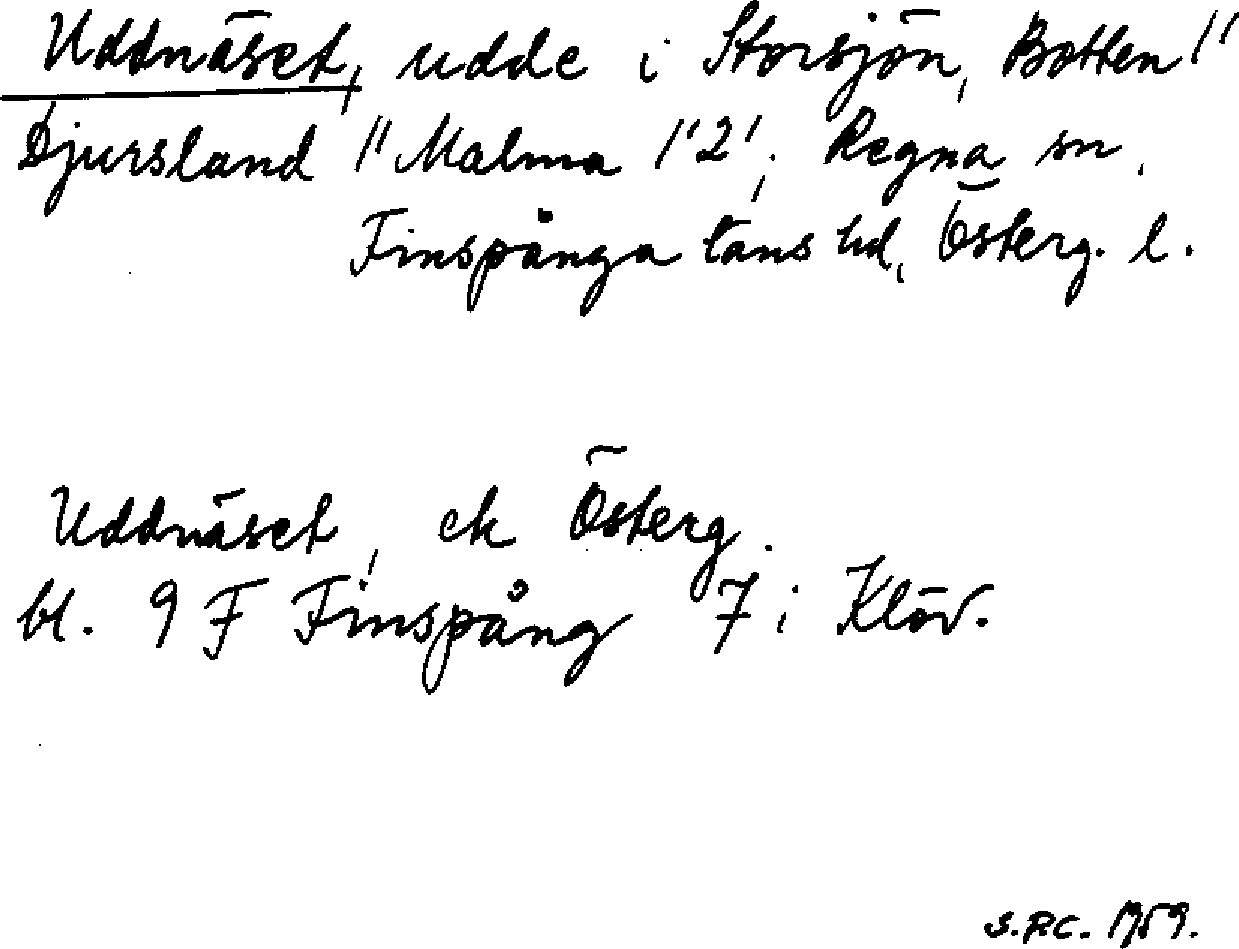 Uddnäset, udde i Storsjön, Botten 1"
Djursland 1" Malma 1'2', Regna sn,
Finspånga läns hd, Österg. l.
Uddnäset, ek Österg.
bl. 9 F Finspång 7 i Klöv.
S.PC. 1959.